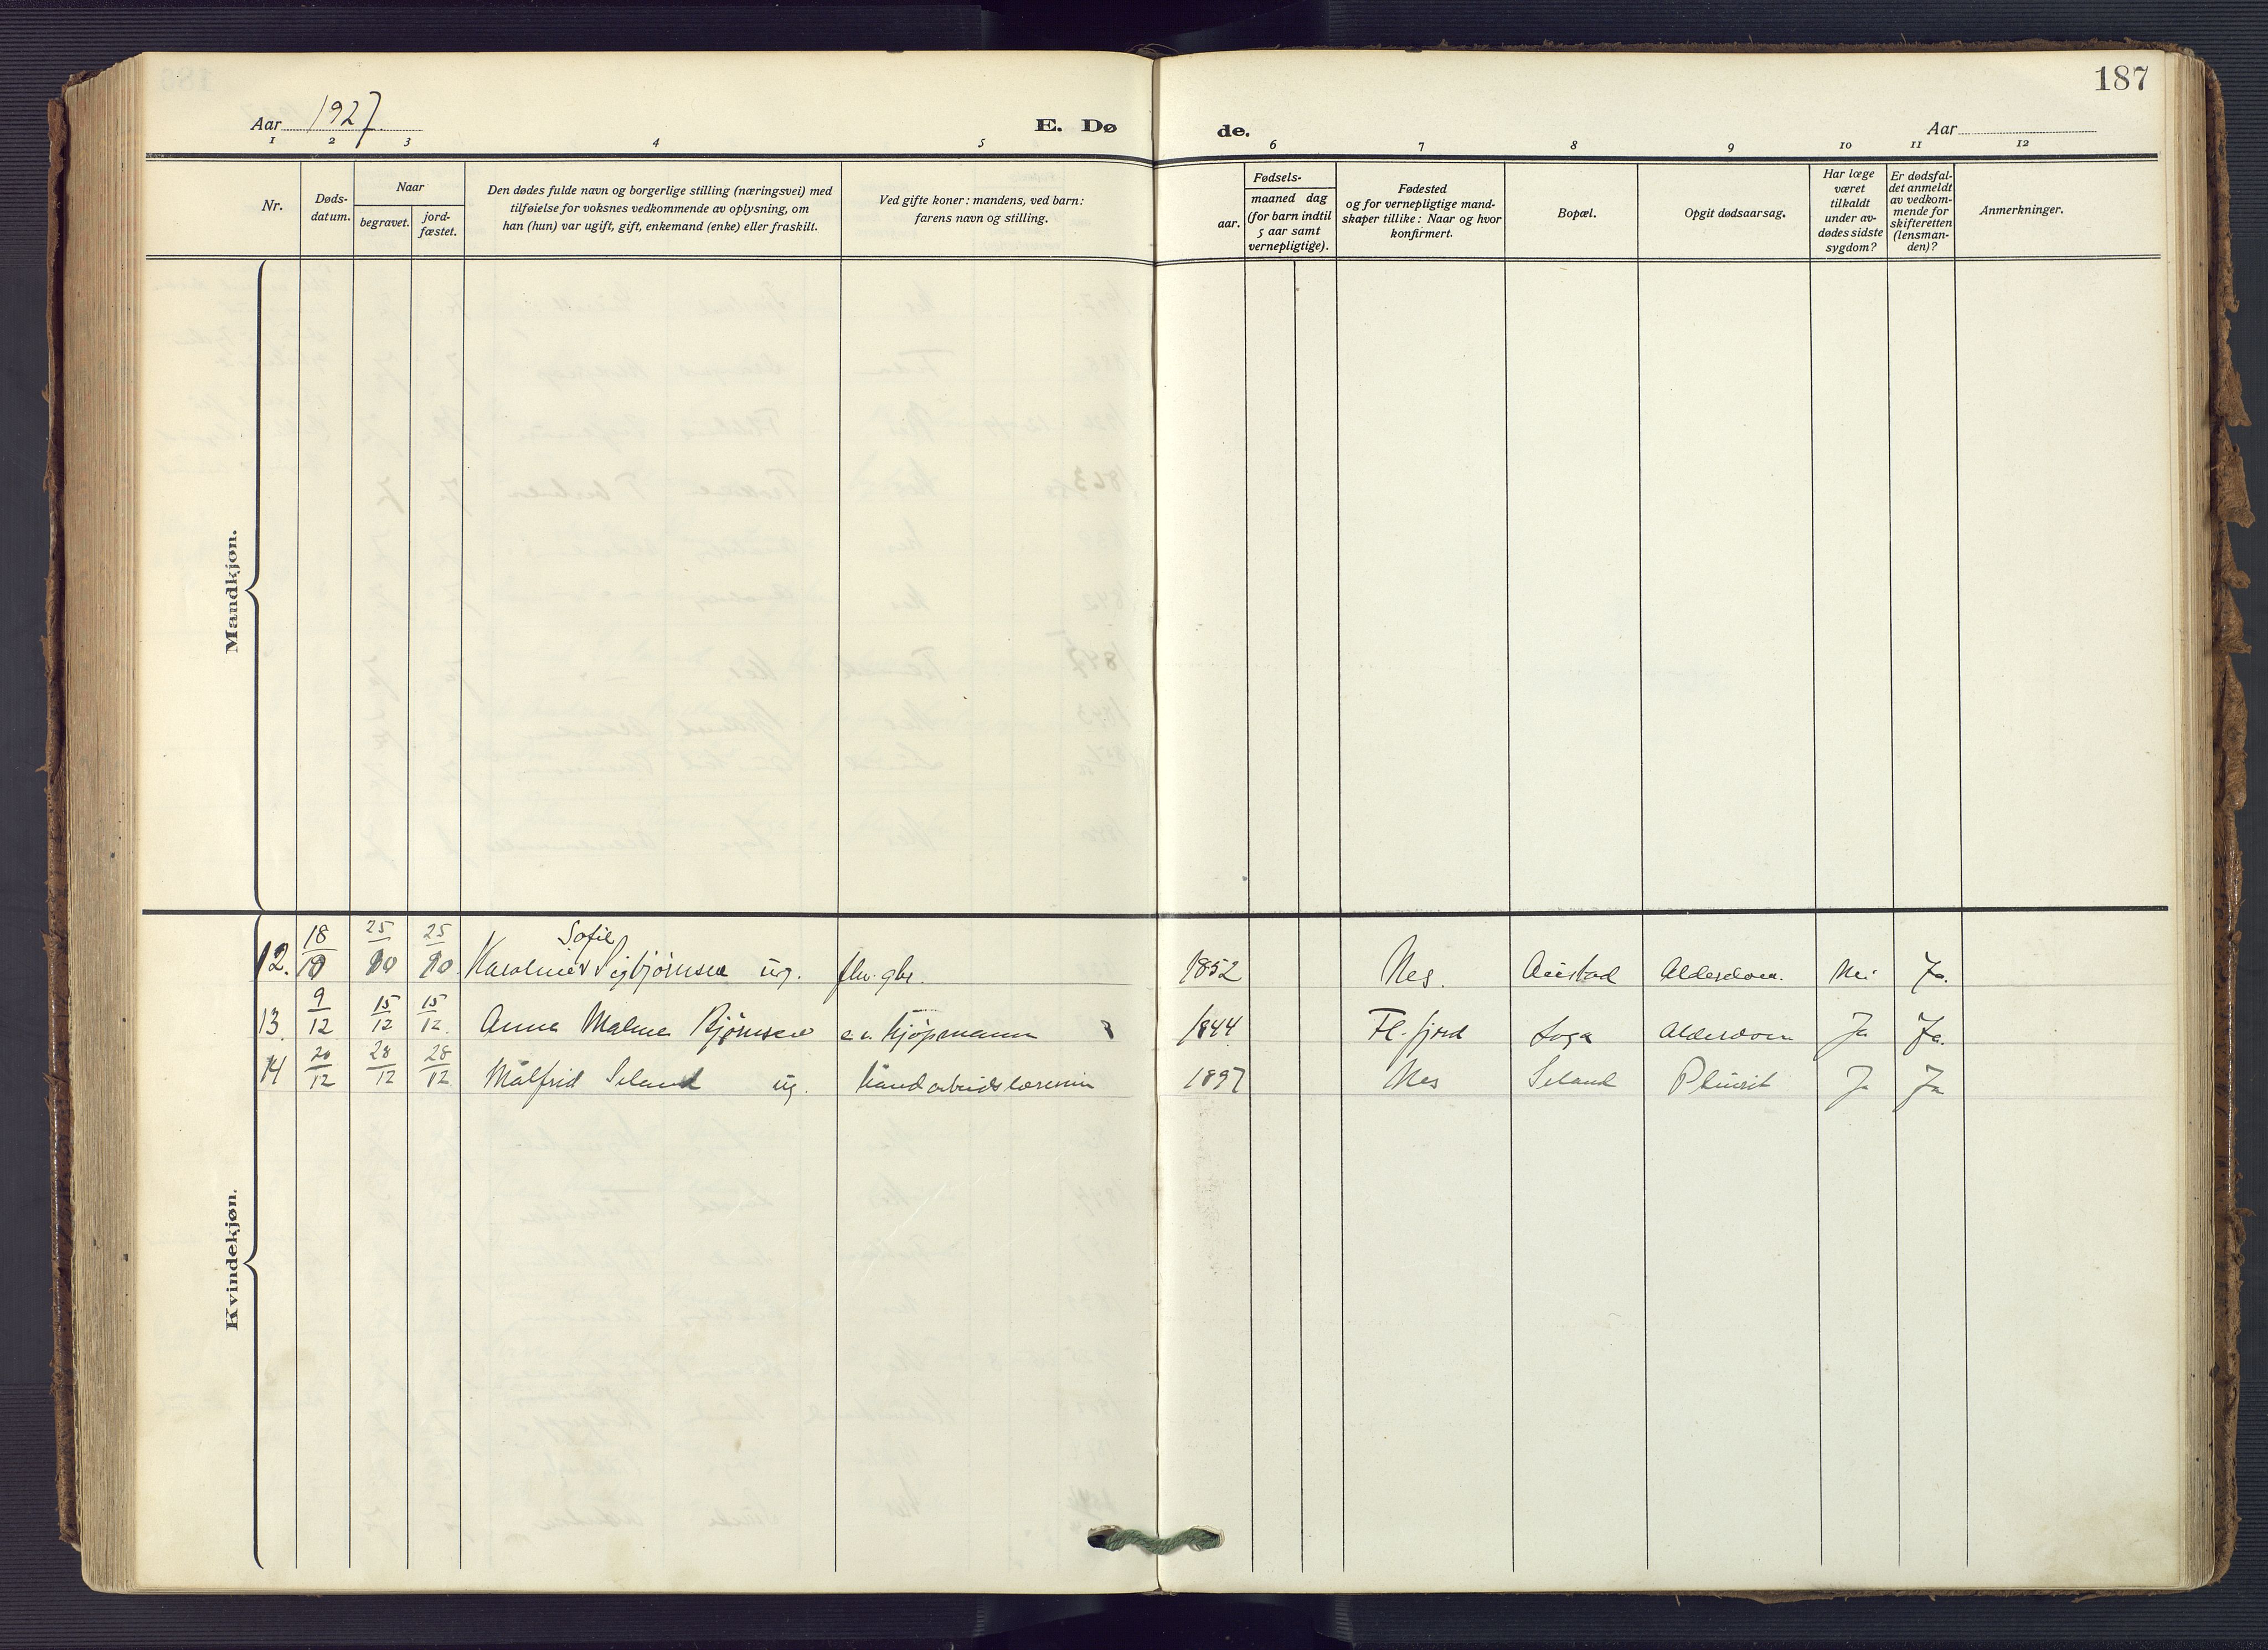 187
Aar 1927
E. Dø
de.
Aar
1 2 3 4 5 6 7 8 9 10 11 12
Nr.
Døds-
datum.
Naar
begravet.
jord-
fæstet.
Den dødes fulde navn og borgerlige stilling (næringsvei) med
tilføielse for voksnes vedkommende av oplysning, om
han (hun) var ugift, gift, enkemand (enke) eller fraskilt.
Ved gifte koner: mandens, ved barn:
farens navn og stilling.
Fødsels-
aar.
maaned dag
(for barn indtil
5 aar samt
vernepligtige).
Fødested
og for vernepligtige mand-
skaper tillike: Naar og hvor
konfirmert.
Bopæl.
Opgit dødsaarsag.
Har læge
været
tilkaldt
under av-
dødes sidste
sygdom?
Er dødsfal-
det anmeldt
av vedkom-
mende for
skifteretten
(lensman-
den)?
Anmerkninger.
Mandkjøn.
Kvindekjøn.
Sofie
12. 18/10 25/10 25/10 Karoline Sigbjørnsen ug. fhv. gbr. 1852 Nes. Austad Alderdom. Nei Ja.
13. 9/12 15/12 15/12 Anna Malene Bjørnsen e. kjøpmann 1844 Fl.fjord Loga Alderdom Ja Ja.
14 20/12 28/12 28/12 Målfrid Seland ug. håndarbeidslærerin 1897 Nes Seland Pleurit Ja Ja